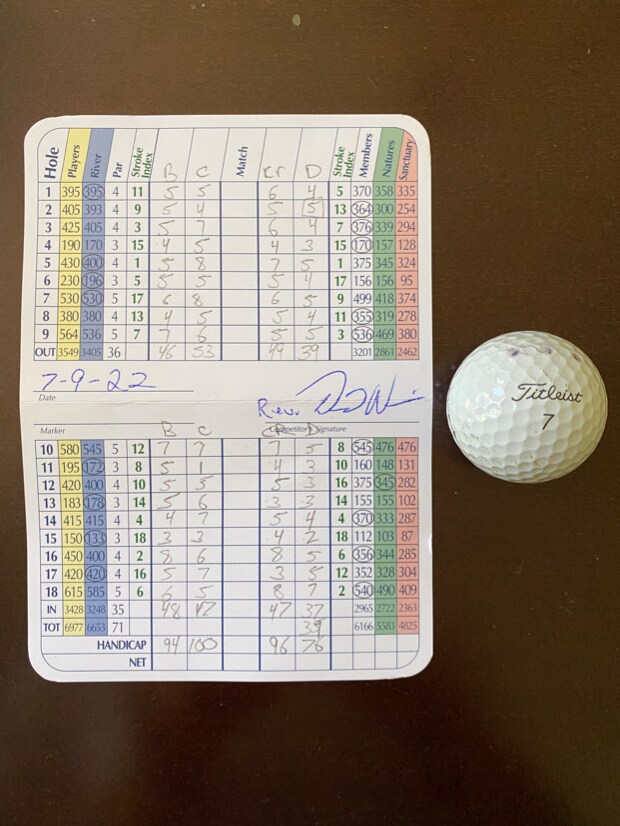 Hole Players River Par Stroke Index B C Match Kr D Stroke Index Members Natures Sanctuary
1 395 395 4 11 5 5 6 4 5 370 358 335
2 405 393 4 9 5 4 5 5 13 364 300 254
3 425 405 4 3 5 7 6 4 7 376 339 294
4 190 170 3 15 4 5 4 3 15 170 157 128
5 430 400 4 1 5 8 7 5 1 375 345 324
6 230 196 3 5 5 5 5 4 17 156 156 95
7 530 530 5 17 6 8 6 5 9 499 418 374
8 380 380 4 13 4 5 5 4 11 355 319 278
9 564 536 5 7 7 6 5 5 3 536 469 380
OUT 3549 3405 36 46 53 49 39 3201 2861 2462
7-9-22
Date
Marker Competitor Signature
B C D
10 580 545 5 12 7 7 7 5 8 545 476 476
11 195 172 3 8 5 1 4 3 10 160 148 131
12 420 400 4 10 5 5 5 3 16 375 345 282
13 183 178 3 14 5 6 3 3 14 155 155 102
14 415 415 4 4 4 7 5 4 4 370 333 287
15 150 133 3 18 3 3 4 2 18 112 103 87
16 450 400 4 2 8 6 8 5 6 356 344 285
17 420 420 4 16 5 7 3 5 12 352 328 304
18 615 585 5 6 6 5 8 7 2 540 490 409
IN 3428 3248 35 48 47 47 37 2965 2722 2363
TOT 6977 6653 71 39 6166 5583 4825
HANDICAP 94 100 96 76
NET
Titleist
7